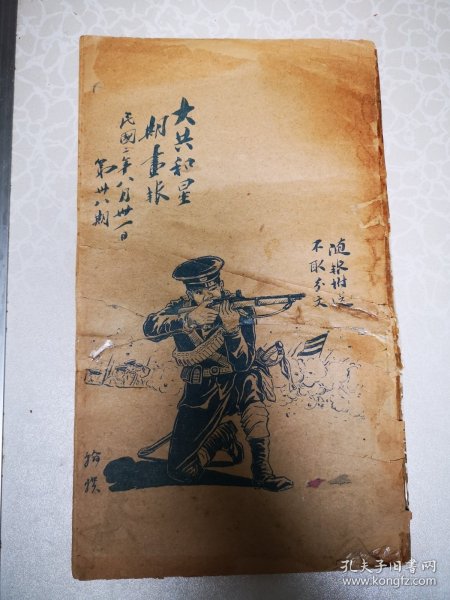 大共和星
期畫报
民國二年八月卅一日
第卅八期
随报附送
不取分文
孔夫子旧书网
www.kongfz.com